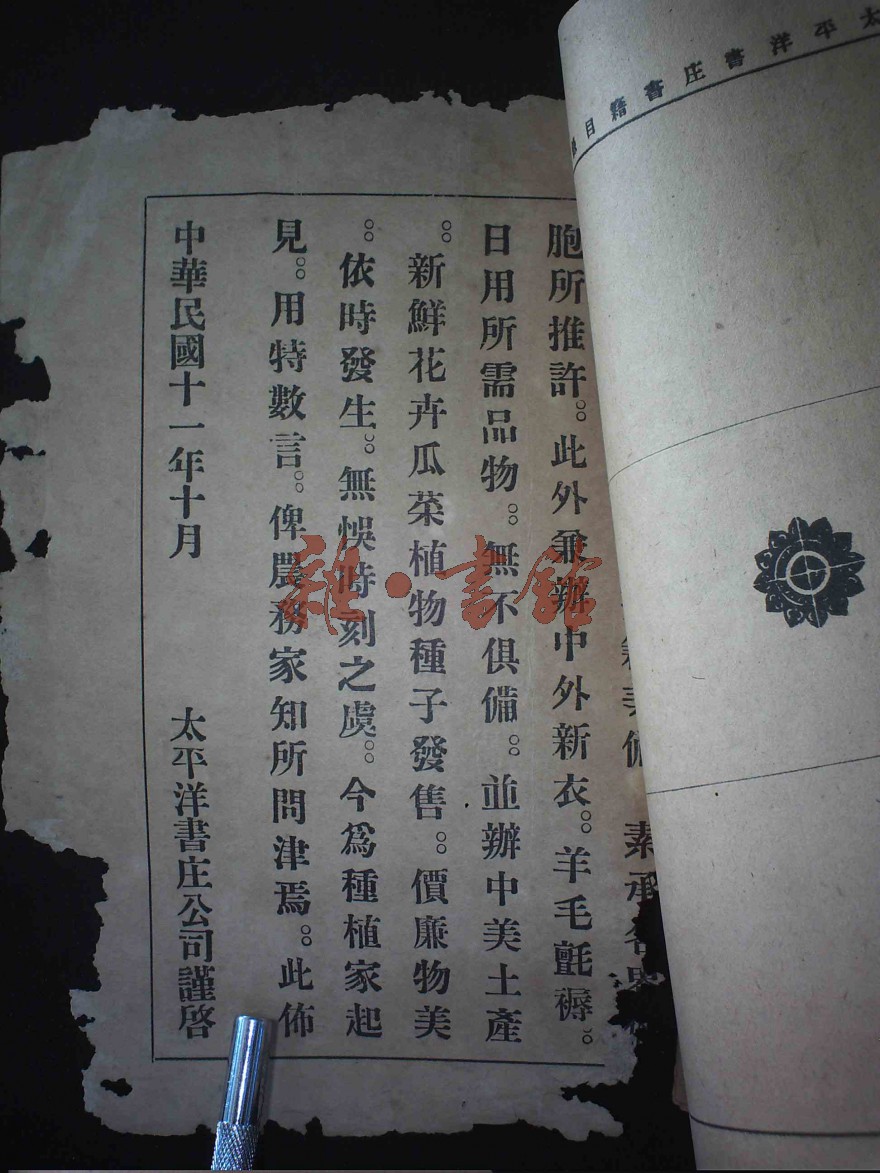 太平洋書庄書籍目
素承各界
胞所推許。此外兼辦中外新衣。羊毛氈褥。
日用所需品物。無不俱備。並辦中美土產
。新鮮花卉瓜菜植物種子發售。價廉物美
。依時發生。無悞時刻之虞。今為種植家起
見。用特數言。俾農務家知所問津焉。此佈
中華民國十一年十月 太平洋書庄公司謹啓
雜·書館